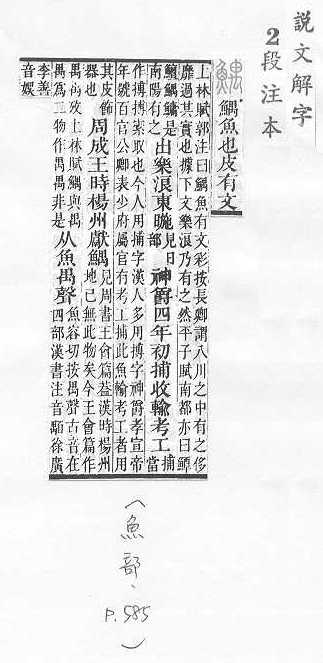 說文解字
2段注本
鰅魚也皮有文
上林賦郭注曰鰅魚有文彩按長卿謂八川之中有之侈
靡過其實也據下文樂浪乃有之然平子賦南都亦曰鱏
鱣鰅鱅是
南陽有之
出樂浪東暆
見日
部
神爵四年初捕收輸考工
捕
當
作搏搏索取也今人用捕字漢人多用搏字神爵孝宣帝
年號百官公卿表少府屬官有考工捕此魚輸考工者用
其皮飾
器也
周成王時楊州獻鰅
見周書王會篇葢漢時楊州
地已無此物矣今王會篇作
禺禺攷上林賦鰅與禺
禺爲二物作禺禺非是
从魚禺聲
魚容切按禺聲古音在
四部漢書注音顒徐廣
李善
音娛
(魚部、P.585)